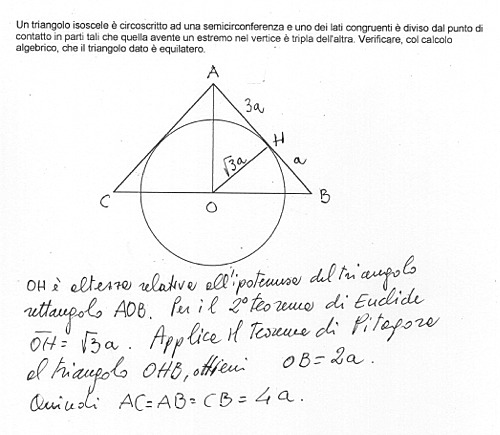 Un triangolo isoscele è circoscritto ad una semicirconferenza e uno dei lati congruenti è diviso dal punto di
contatto in parti tali che quella avente un estremo nel vertice è tripla dell'altra. Verificare, col calcolo
algebrico, che il triangolo dato è equilatero.
A
3a
H
√3a
a
C
O
B
OH è altezza relativa all'ipotenusa del triangolo
rettangolo AOB. Per il 2° teorema di Euclide
OH = √3a. Applico il Teorema di Pitagora
al triangolo OHB, ottieni OB = 2a.
Quindi AC = AB = CB = 4a.